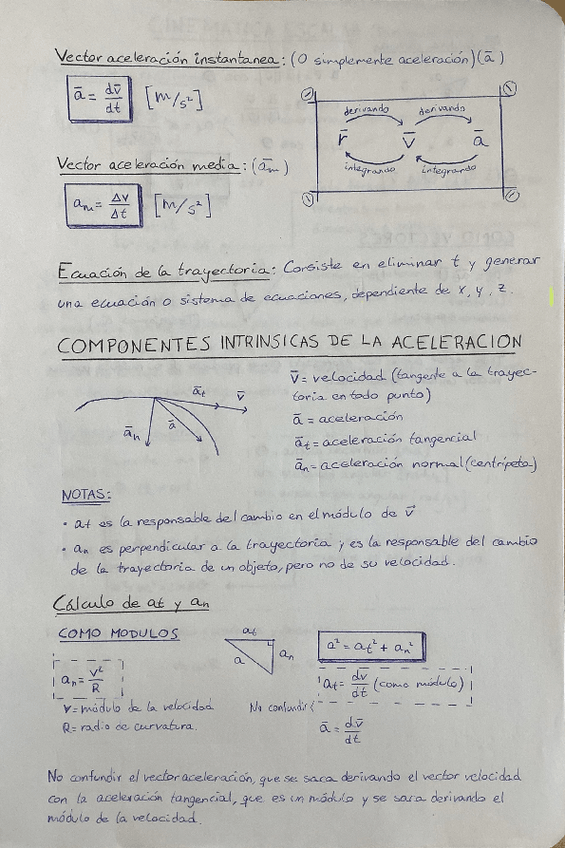 Vector aceleración instantanea: (O simplemente aceleración) (ā)
ā = dv̄/dt [m/s²]
derivando derivando
r̄ v̄ ā
integrando integrando
Vector aceleración media: (ā_m)
a_m = Δv/Δt [m/s²]
Ecuación de la trayectoria: Consiste en eliminar t y generar
una ecuación o sistema de ecuaciones, dependiente de x, y, z.
COMPONENTES INTRINSICAS DE LA ACELERACION
ā_t v̄
ā_n ā
v̄ = velocidad (tangente a la trayec-
toria en todo punto)
ā = aceleración
ā_t = aceleración tangencial
ā_n = aceleración normal (centrípeta)
NOTAS:
· at es la responsable del cambio en el módulo de v̄
· an es perpendicular a la trayectoria y es la responsable del cambio
de la trayectoria de un objeto, pero no de su velocidad.
Cálculo de at y an
COMO MODULOS
a_t
a a_n
a² = a_t² + a_n²
a_n = v²/R
a_t = dv̄/dt (como módulo)
V = módulo de la velocidad
No confundir {
R = radio de curvatura.
ā = dv̄/dt
No confundir el vector aceleración, que se saca derivando el vector velocidad
con la aceleración tangencial, que es un módulo y se saca derivando el
módulo de la velocidad.